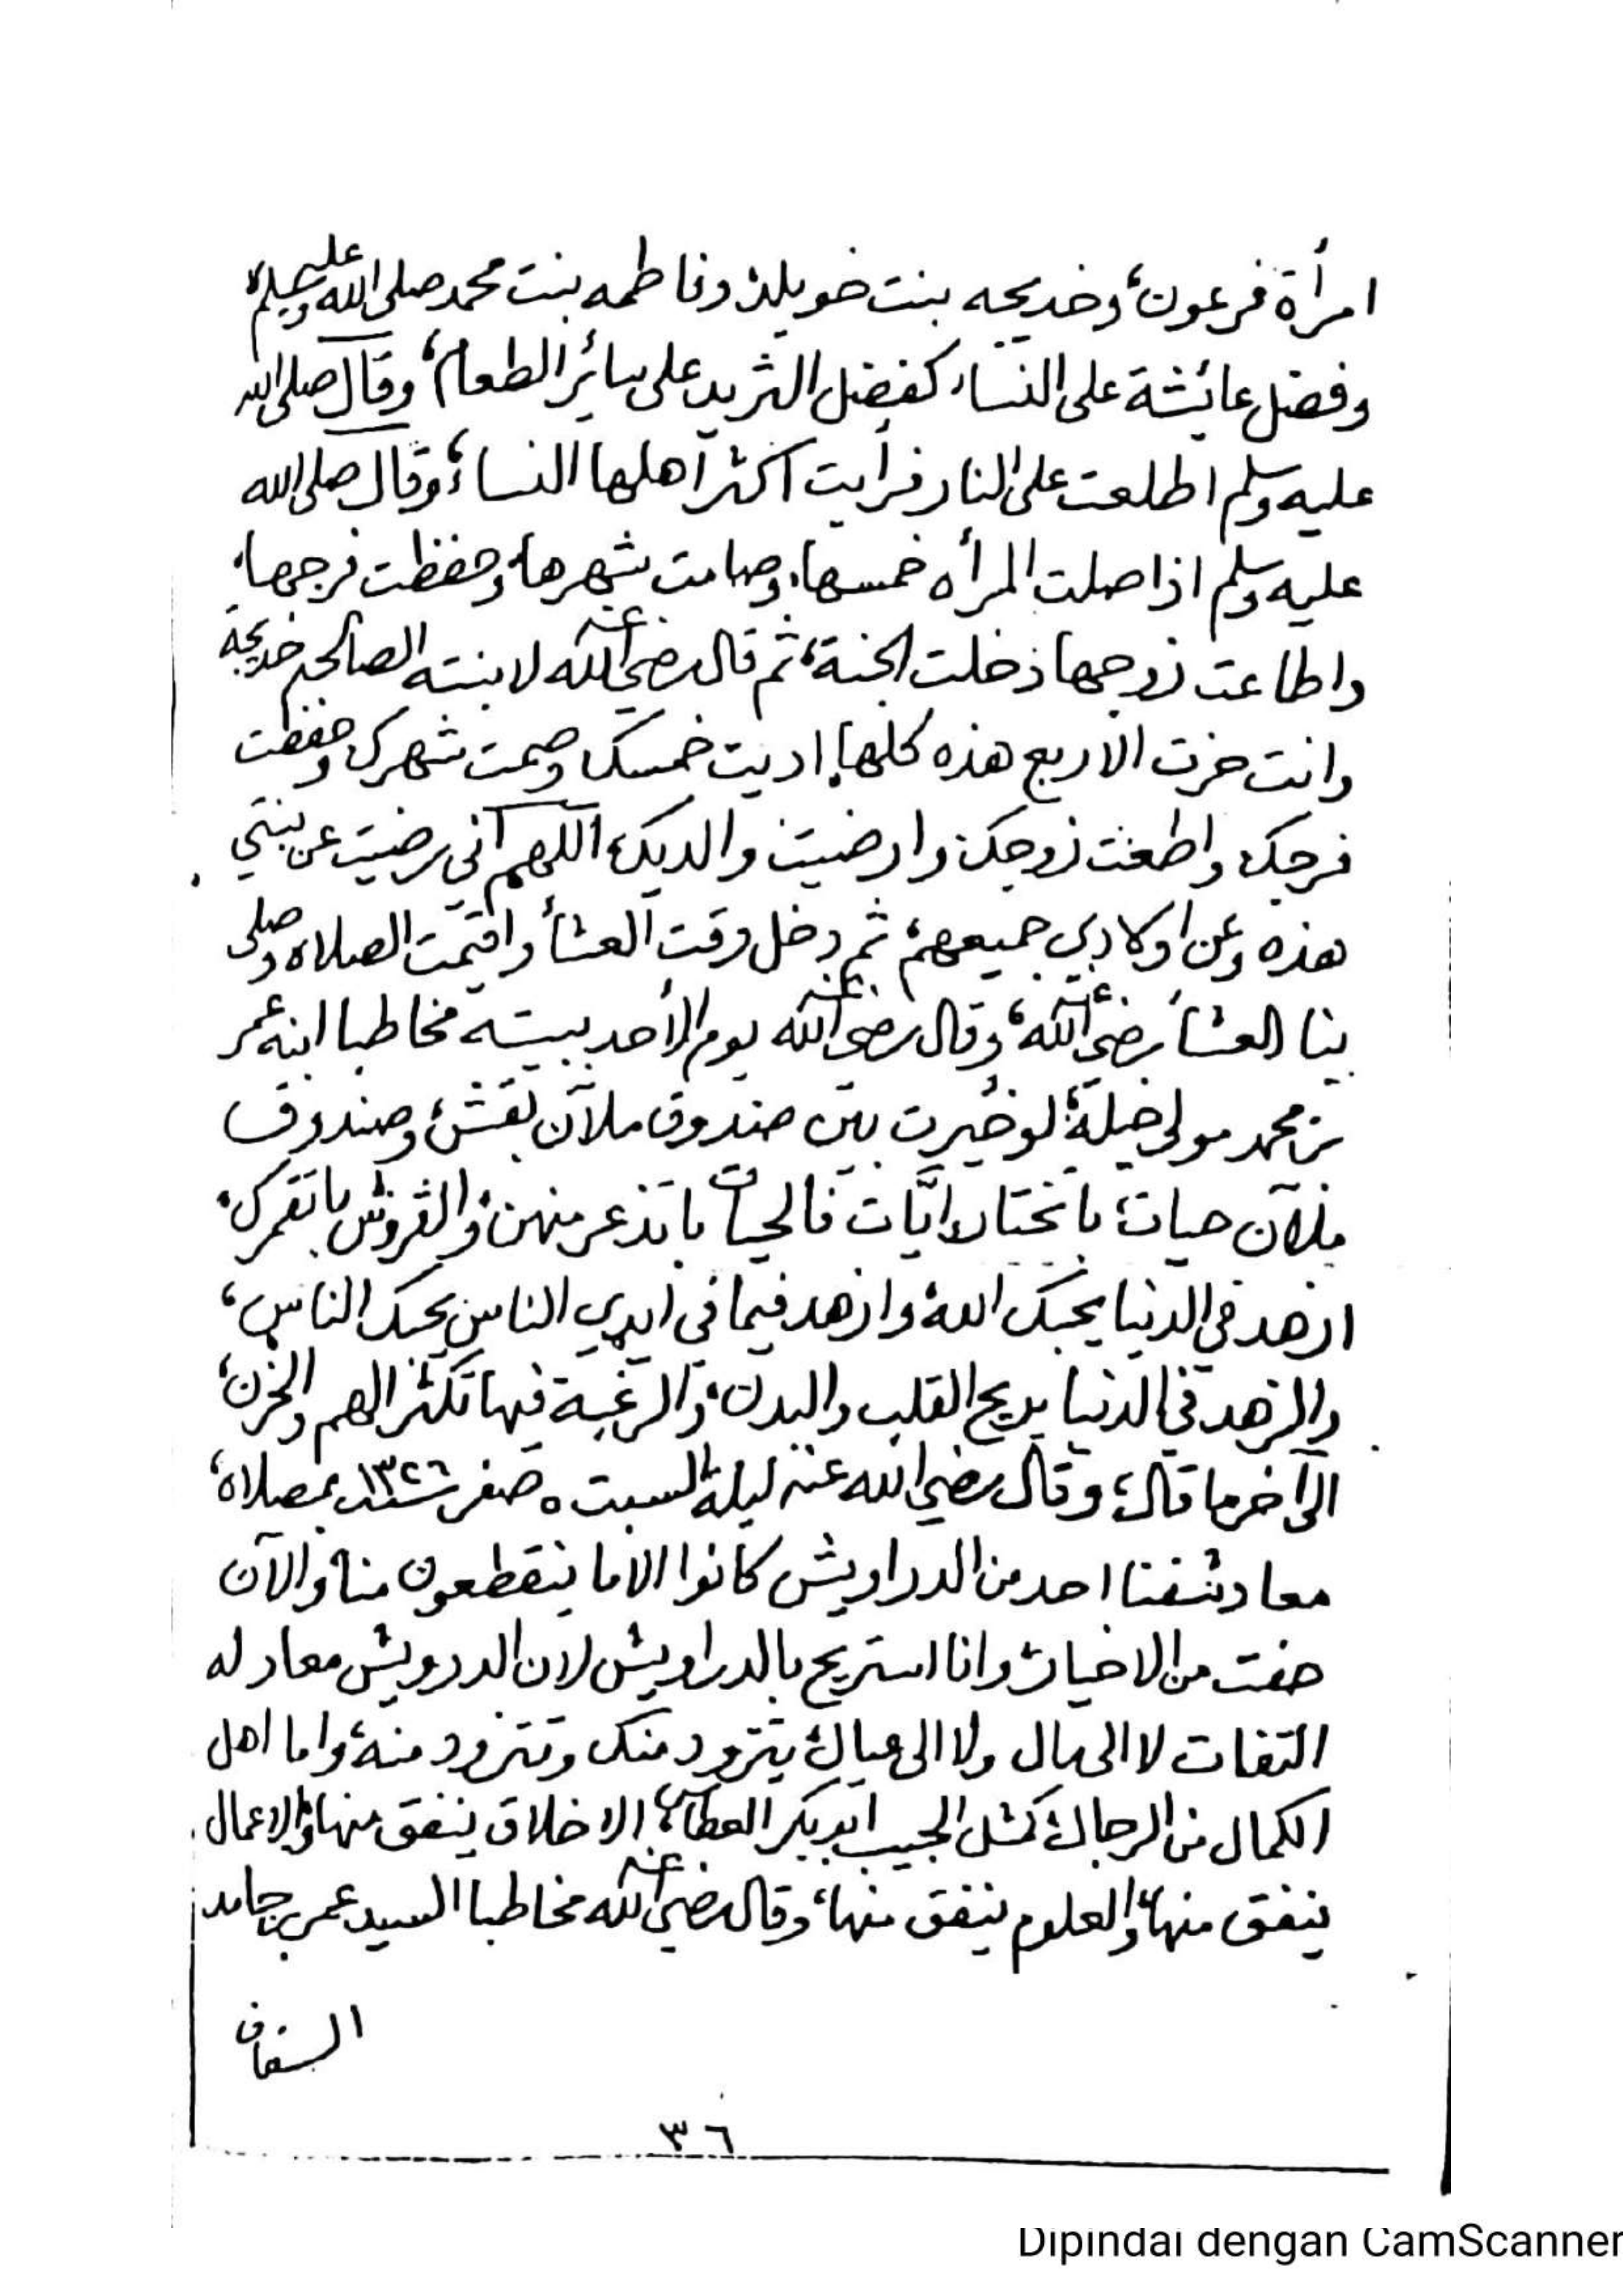 امرأة فرعون، وخديجه بنت خويلد وفاطمه بنت محمد صلى الله عليه وسلم،
وفضل عائشة على النساء كفضل الثريد على سائر الطعام، وقال صلى الله
عليه وسلم اطلعت على النار فرأيت اكثر اهلها النساء، وقال صلى الله
عليه وسلم اذا صلت المرأه خمسها، وصامت شهرها، وحفظت فرجها،
واطاعت زوجها دخلت الجنة، ثم قال رضي الله عنه لابنته الصالحه خديجة
وانت حزت الاربع هذه كلها، اديت خمسك وصمت شهرك وحفظت
فرجك واطعت زوجك وارضيت والديك، اللهم اني رضيت عن بنتي
هذه وعن اولادي جميعهم، ثم دخل وقت العشأ واقيمت الصلاه وصلى
بنا العشأ رضي الله عنه، وقال رضي الله عنه يوم الأحد ببيته مخاطبا ابنه عمر
بن محمد مولى خيلة، لو خيرت بين صندوق ملآن بقش، وصندوق
ملآن حيات، باتختار ايات فالحيات باتذعر منهن، والقروش باتغرك،
ازهد في الدنيا يحبك الله، وازهد فيما في ايدي الناس يحبك الناس،
والزهد في الدنيا يريح القلب والبدن، والرغبة فيها تكثر الهم والحزن،
الى آخر ما قال، وقال رضي الله عنه ليلة السبت ٥ صفر سنة ١٣٢٦ بمصلاه،
معاد شفنا احد من الدراويش كانوا الاما ينقطعون منا، والآن
خفت من الاخيار، وانا استريح بالدراويش لان الدرويش معاد له
التفات لا الى مال ولا الى عيال، يتزود منك وتتزود منه، واما اهل
الكمال من الرجال، كمثل الحبيب ابوبكر العطاس، الاخلاق ينفق منها، والاعمال
ينفق منها، والعلوم ينفق منها، وقال رضي الله عنه مخاطبا السيد عمر بن حامد
السقاف
٣٦
Dipindai dengan CamScanner